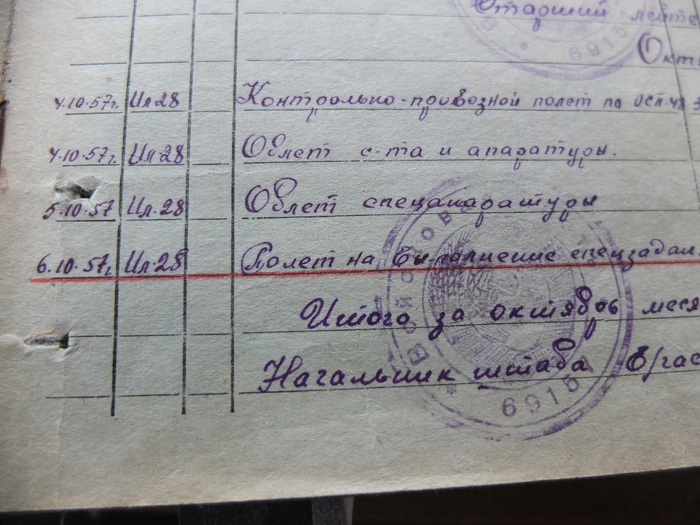 Старший лейте
6915
Окт
4.10.57г. Ил 28 Контрольно-провозной полет по
4.10.57г. Ил 28 Облет с-та и апаратуры.
5.10.57 Ил.28 Облет спецапаратуры
6.10.57г. Ил 28 Полет на выполнение спецзадан.
Итого за октябрь меся
Начальник штаба в/час
Войсковая
6915